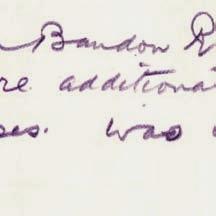 Bandon R
re additional
ses. was